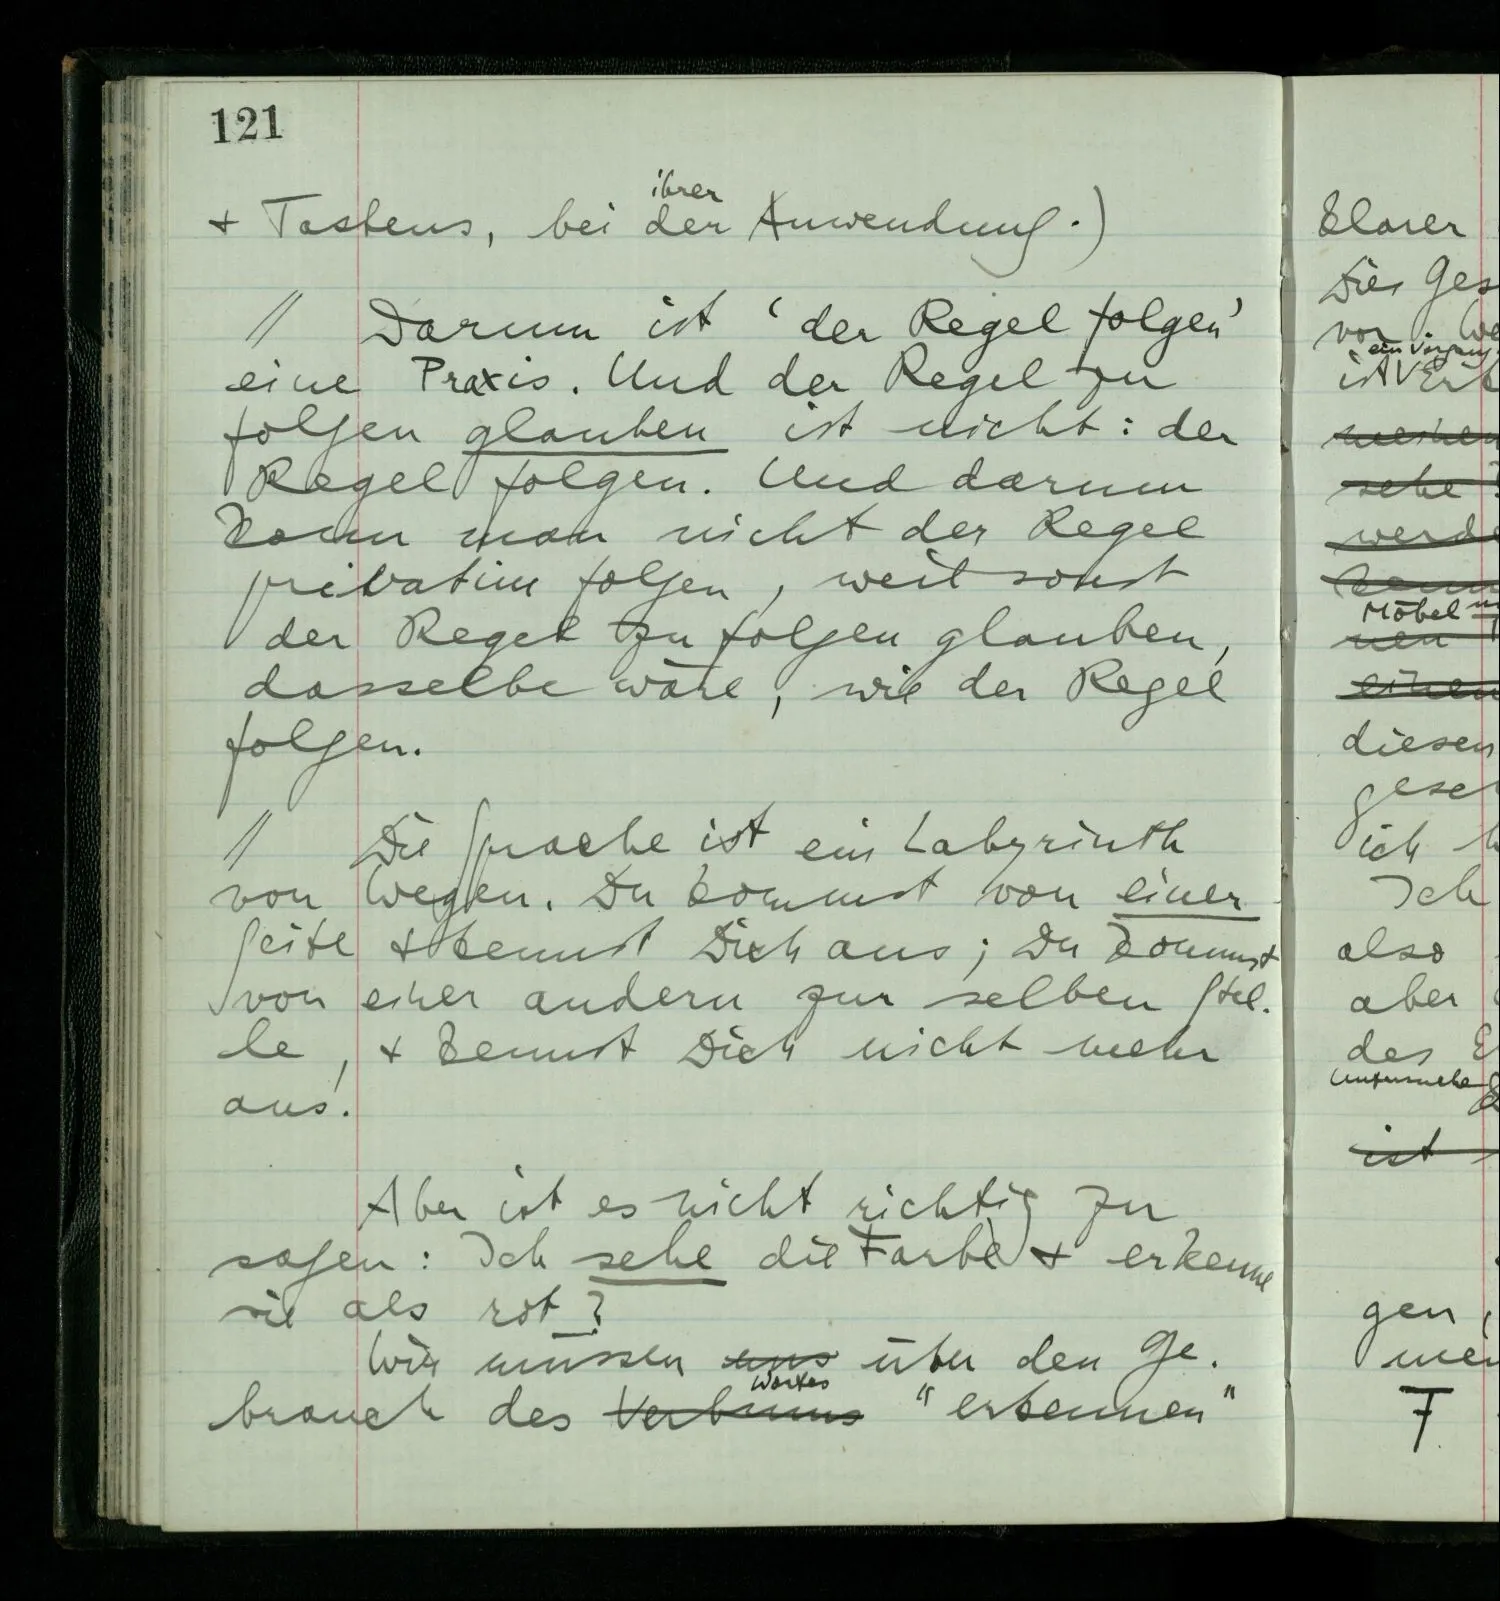 121
ihrer
+ Tastens, bei der Anwendung.)
// Darum ist ‘der Regel folgen’
eine Praxis. Und der Regel zu
folgen glauben ist nicht: der
Regel folgen. Und darum
kann man nicht der Regel
privatim folgen, weil sonst
der Regel zu folgen glauben,
dasselbe wäre, wie der Regel
folgen.
// Die Sprache ist ein Labyrinth
von Wegen. Du kommst von einer
Seite + kennst Dich aus; Du kommst
von einer andern zur selben Stel-
le, + kennst Dich nicht mehr
aus.
Aber ist es nicht richtig zu
sagen: Ich sehe die Farbe + erkenne
sie als rot?
Wir müssen uns über den Ge-
Wortes
brauch des Verbums “erkennen”
klarer
Dies
vor
ein Vorgang
ist
meinen
sehe
Möbel
nen
einen
diesen
ich
Ich
also
aber
des
ist
gen,
F